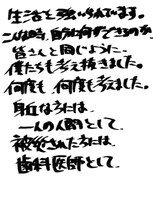 生活を強いられています。
こんな時、自分に何ができるのか、
皆さんと同じように、
僕たちも考え抜きました。
何度も何度も考えました。
身近な方には、
一人の人間として、
被災された方には、
歯科医師として、